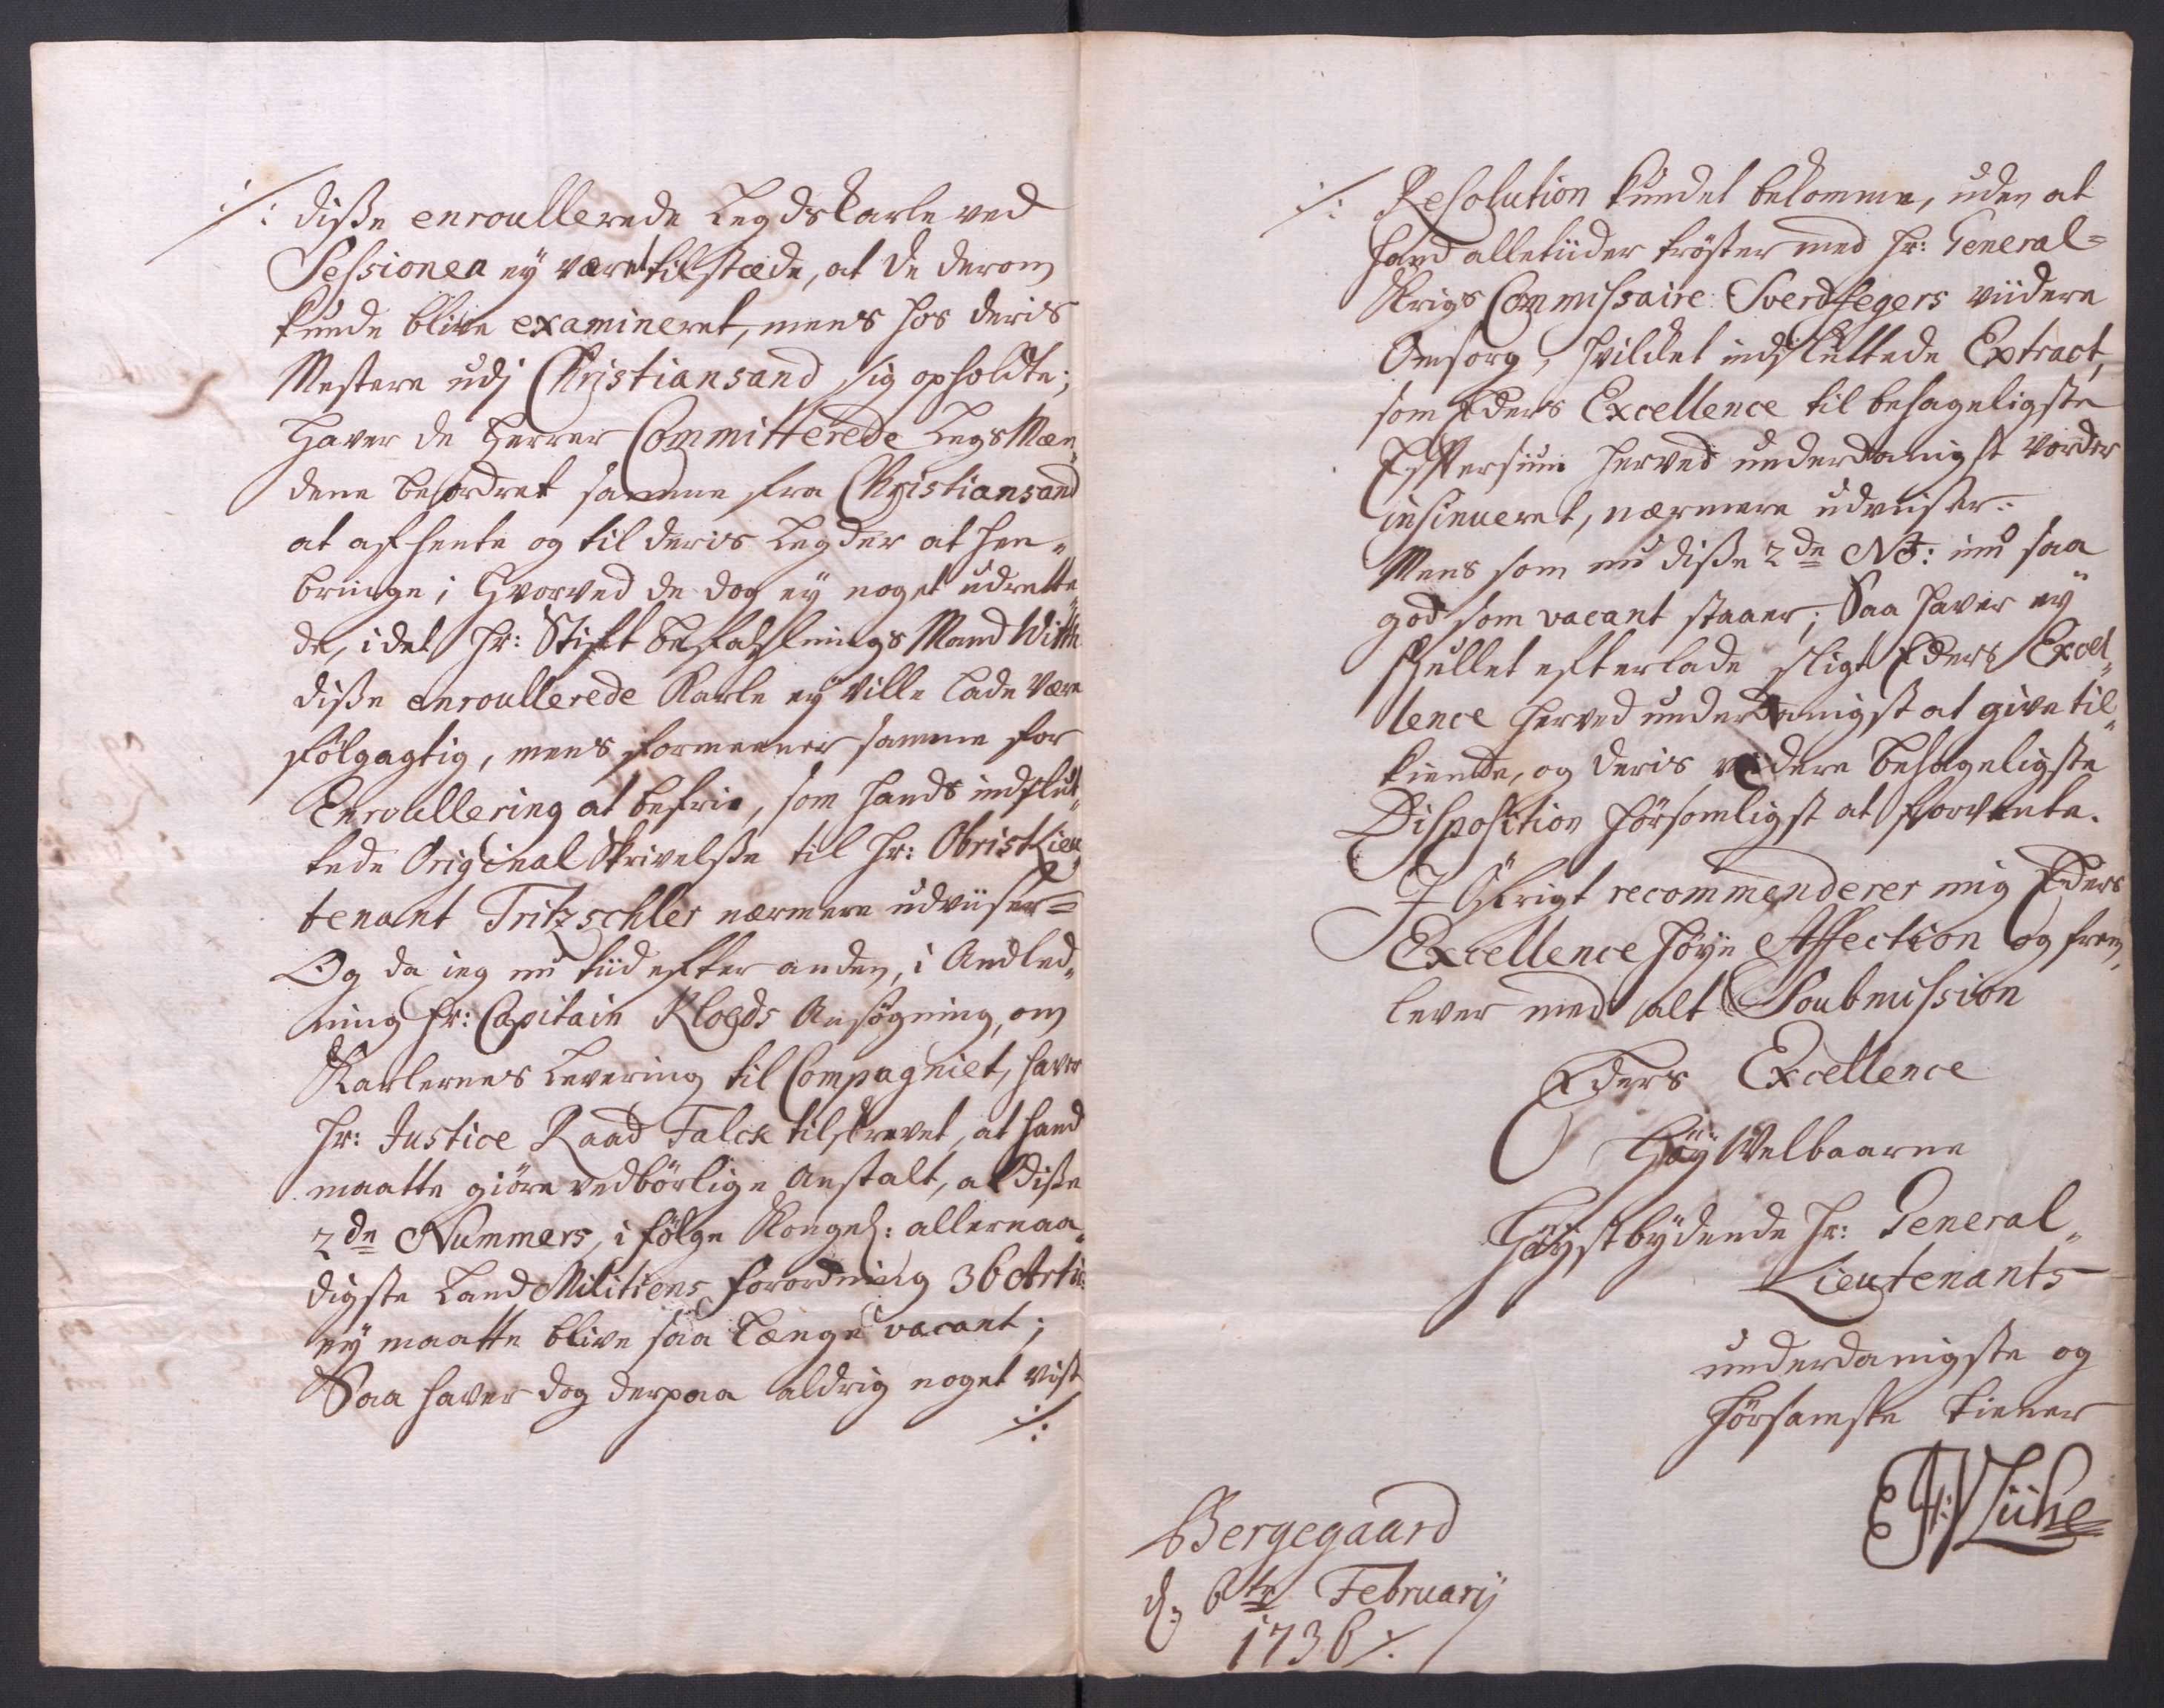 ./: diße enroullerede Legdskarle ved
Sessionen ey været tilstæde, at de derom
kunde blive examineret, mens hos deris
Mestere udj Christiansand sig opholdte;
Haver de Herrer Committerede LegsMæn„
dene beordret samme fra Christiansand
at afhente og til deris Legder at hen„
bringe; Hvorved de dog ey noget udrette„
de, idet Hr: Stift befahlnings Mand Witth
diße enroullerede Karle ey ville lade være
følgagtig, mens formeener samme for
Enroullering at befrie, som hands indslut„
tede Original Skrivelße til Hr: Obrist Lieu„
tenant Fritzschler nærmere udviiser=
Og da ieg nu tiid efter anden, i Andled„
ning Hr: Capitain Kloeds Ansøgning, om
Karlernes Levering til Compagniet, haver
Hr: Justice Raad Falck tilskrevet, at hand
maatte giöre vedbörlige Anstalt, at diße
2de Nummers, i fölge Kongel: allernaa„
digste Land Militiens forordning 36 Artic:
ey maatte blive saa længe vacant;
Saa haver dog derpaa aldrig noget vist
./:
./: Resolution kundet bekomme, uden at
hand alletiider tröster med Hr: General=
Krigs Commissaire Sverdfegers viidere
Omsorg, hvilket indsluttede Extract,
som Eders Excellence til behageligste
Eftersiun herved underdanigst vorder
insinueret, nærmere udviiser.
Mens som nu diße 2de No: nu saa
god som vacant staaer; Saa haver ey
skullet efterlade sligt Eders Excel„
lence herved underdanigst at give til„
kiende, og deris viidere behageligste
Disposition hörsomligst at forvente.
I Öfrigt recommenderer mig Eders
Excellence höye Affection og frem„
lever med alt Soubmission
Eders Excellence
Höy Welbaarne
Höystbydende Hr: General„
Lieutenants
underdanigste og
hörsamste tiener
Lühe
Bergegaard
d: 6te Februarij
1736 ./.